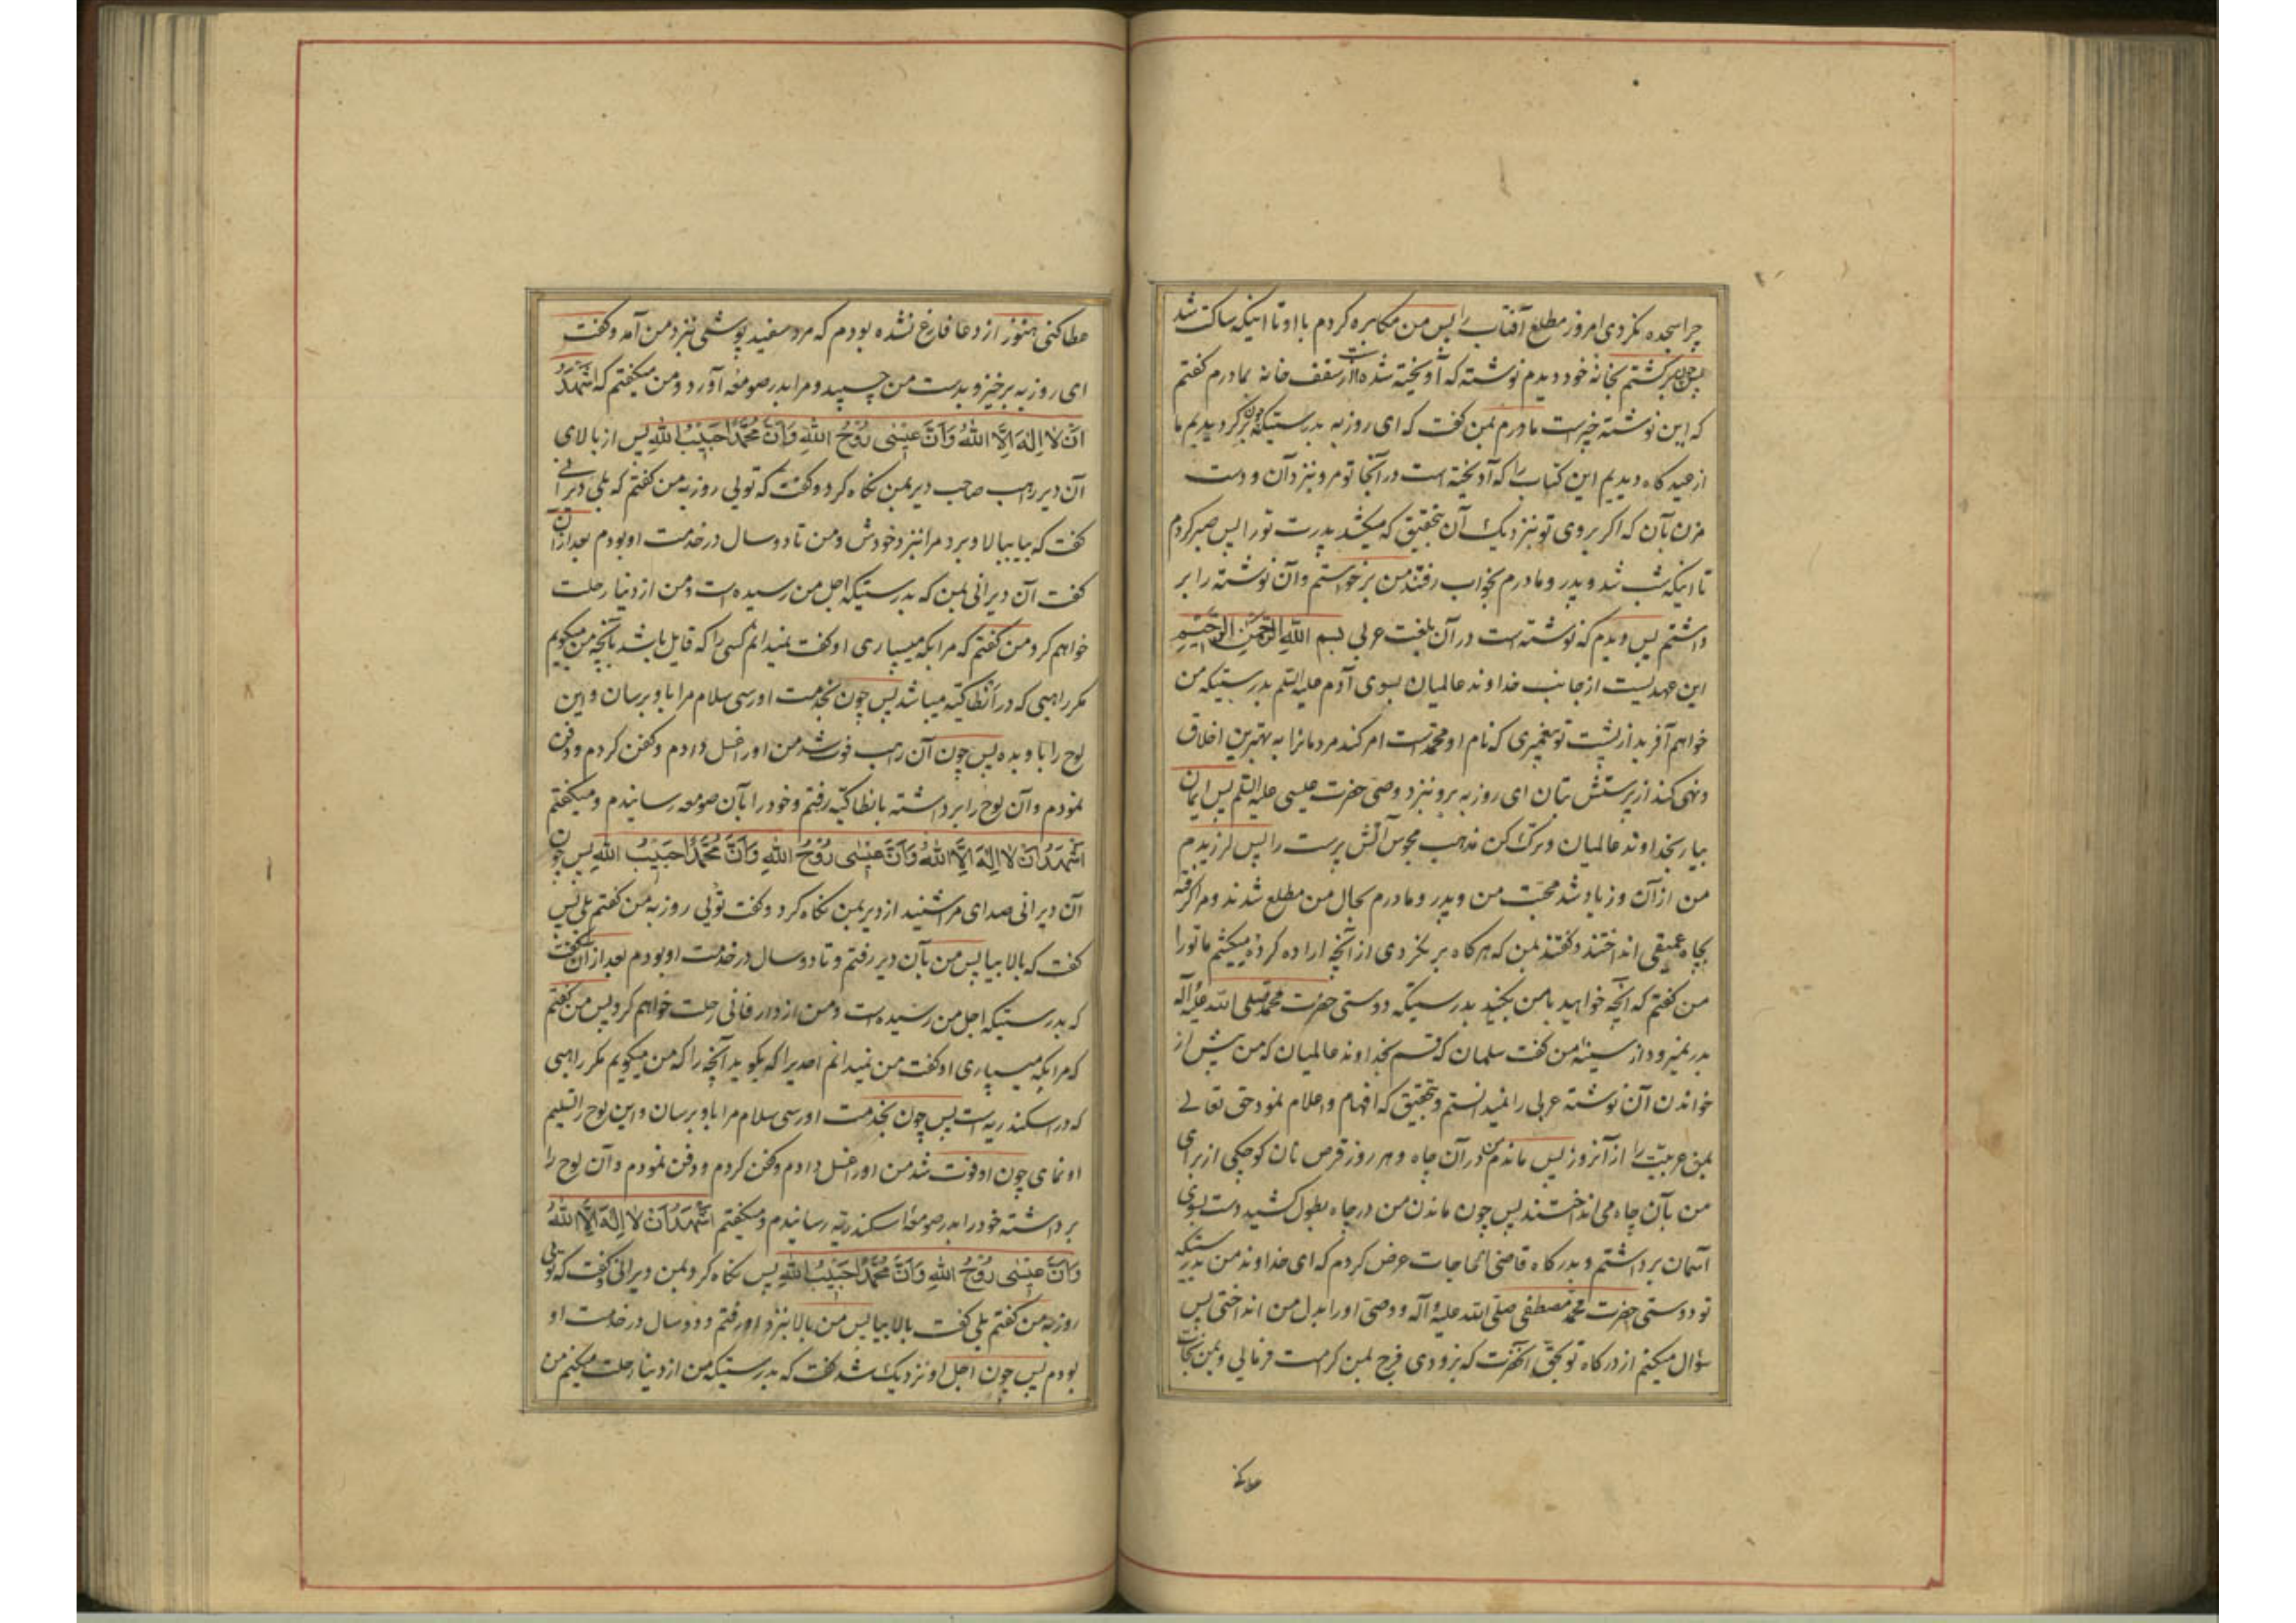 چرا سجده نکردی امروز مطلع آفتاب را پس من مکابره کردم با او تا اینکه ساکت شد
پس چون برگشتم بخانه خود دیدم نوشته که آویخته شده است از سقف خانه بمادرم گفتم
که این نوشته چیست مادرم بمن گفت که ای روزبه بدرستیکه چون برگردیدیم ما
از عیدگاه دیدیم این کتاب را که آویخته است در آنجا تو مرو نزد آن و دست
مزن بآن که اگر بروی تو نزدیک آن بتحقیق که میکشد پدرت تو را پس صبر کردم
تا اینکه شب شد و پدر و مادرم بخواب رفتند من برخواستم و آن نوشته را بر
داشتم پس دیدم که نوشته است در آن بلغت عربی بسم الله الرحمن الرحیم
این عهدیست از جانب خداوند عالمیان بسوی آدم علیه السلم بدرستیکه من
خواهم آفرید از پشت تو پیغمبری که نام او محمد است امر کند مردمانرا به بهترین اخلاق
و نهی کند از پرستش بتان ای روزبه برو نزد وصی حضرت عیسی علیه السلم پس ایمان
بیار بخداوند عالمیان و ترک کن مذهب مجوس آتش پرست را پس لرزیدم
من از آن و زیاد شد محبت من و پدر و مادرم بحال من مطلع شدند و مرا گرفته
بچاه عمیقی انداختند و گفتند بمن که هرگاه برنگردی از آنچه اراده کردهٔ میکشیم ما تو را
من گفتم که آنچه خواهید با من بکنید بدرستیکه دوستی حضرت محمد صلی الله علیه و آله
بدر نمیرود از سینهٔ من گفت سلمان که قسم بخداوند عالمیان که من پیش از
خواندن آن نوشته عربی را نمیدانستم و بتحقیق که افهام و اعلام نمود حق تعالی
بمن عربیت را از آنروز پس ماندم من در آن چاه و هر روز قرص نان کوچکی از برای
من بآن چاه می انداختند پس چون ماندن من در چاه بطول کشید دست بسوی
آسمان برداشتم و بدرگاه قاضی الحاجات عرض کردم که ای خداوند من بدرستیکه
تو دوستی حضرت محمد مصطفی صلی الله علیه و آله و وصی او را بدل من انداختی پس
سؤال میکنم از درگاه تو بحق آنحضرت که بزودی فرج بمن کرامت فرمائی و بمن نجات
عطا کنی
عطا کنی هنوز از دعا فارغ نشده بودم که مرد سفید پوشی بنزد من آمد و گفت
ای روزبه برخیز و بدست من چسپید و مرا بدر صومعه آورد و من میگفتم که اَشْهَدُ
اَنْ لا اِلهَ اِلَّا اللهُ وَاَنَّ عیسٰی رُوْحُ اللهِ وَاَنَّ مُحَمَّداً حَبیْبُ اللهِ پس از بالای
آن دیر راهب صاحب دیر بمن نگاه کرد و گفت که توئی روزبه من گفتم که بلی دیرانی
گفت که بیا ببالا و برد مرا نزد خودش و من تا دو سال در خدمت او بودم بعد از آن
گفت آن دیرانی بمن که بدرستیکه اجل من رسیده است و من از دنیا رحلت
خواهم کرد من گفتم که مرا بکه میسپاری او گفت نمیدانم کسی را که قایل باشد بآنچه من میگویم
مگر راهبی که در اَنطاکیّه میباشد پس چون بخدمت او رسی سلام مرا باو برسان و این
لوح را باو بده پس چون آن راهب فوت شد من او را غسل دادم و کفن کردم و دفن
نمودم و آن لوح را برداشته بانطاکیّه رفتم و خود را بآن صومعه رسانیدم و میگفتم
اَشْهَدُ اَنْ لا اِلهَ اِلَّا اللهُ وَاَنَّ عیسٰی رُوْحُ اللهِ وَاَنَّ مُحَمَّداً حَبیْبُ اللهِ پس چون
آن دیرانی صدای مرا شنید از دیر بمن نگاه کرد و گفت توئی روزبه من گفتم بلی پس
گفت که بالا بیا پس من بآن دیر رفتم و تا دو سال در خدمت او بودم بعد از آن گفت
که بدرستیکه اجل من رسیده است و من از دار فانی رحلت خواهم کرد پس من گفتم
که مرا بکه میسپاری او گفت من نمیدانم احدیرا که بگوید آنچه را که من میگویم مگر راهبی
که در اسکندریه است پس چون بخدمت او رسی سلام مرا باو برسان و این لوح را تسلیم
او نمای چون او فوت شد من او را غسل دادم و کفن کردم و دفن نمودم و آن لوح را
برداشته خود را بدر صومعهٔ اسکندریّه رسانیدم و میگفتم اَشْهَدُ اَنْ لا اِلهَ اِلَّا اللهُ
وَاَنَّ عیسٰی رُوْحُ اللهِ وَاَنَّ مُحَمَّداً حَبیْبُ اللهِ پس نگاه کرد بمن دیرانی و گفت که توئی
روزبه من گفتم بلی گفت بالا بیا پس من بالا نزد او رفتم و دو سال در خدمت او
بودم پس چون اجل او نزدیک شد گفت که بدرستیکه من از دنیا رحلت میکنم من